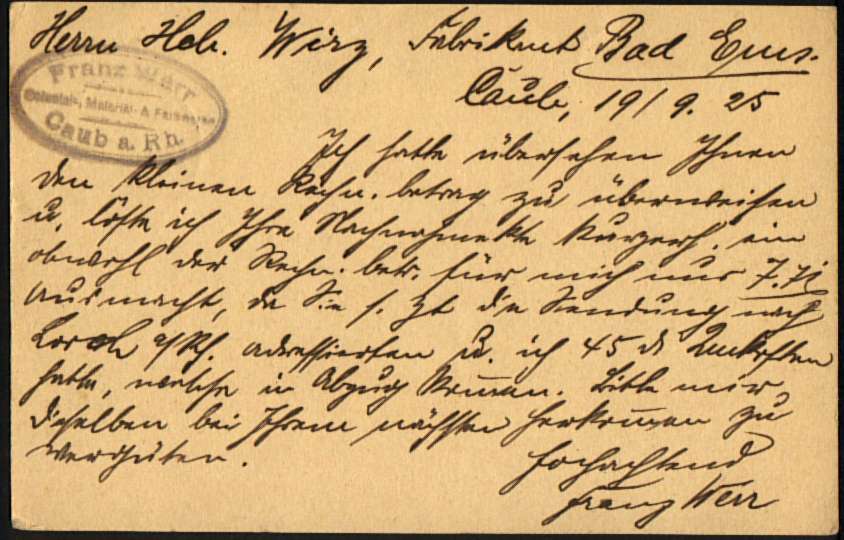 Herrn Hch. Wirz, Fabrikant Bad Ems.
Franz Werr
Colonial-, Material- & Farbwaren
Caub a. Rh.
Caub, 19/9. 25
Ich hatte übersehen Ihnen
den kleinen Rechn. betrag zu überweisen
u. löste ich Ihre Nachnahmekte kurzerh. ein
obwohl der Rechn. betr. für mich nur 7.71
ausmacht, da Sie s. Zt die Sendung nach
Lorch a/Rh. adressierten u. ich 45 d Unkosten
hatte, welche in Abzug kom̅en. Bitte mir
dieselben bei Ihrem nächsten Herkom̅en zu
vergüten.
Hochachtend
Franz Werr